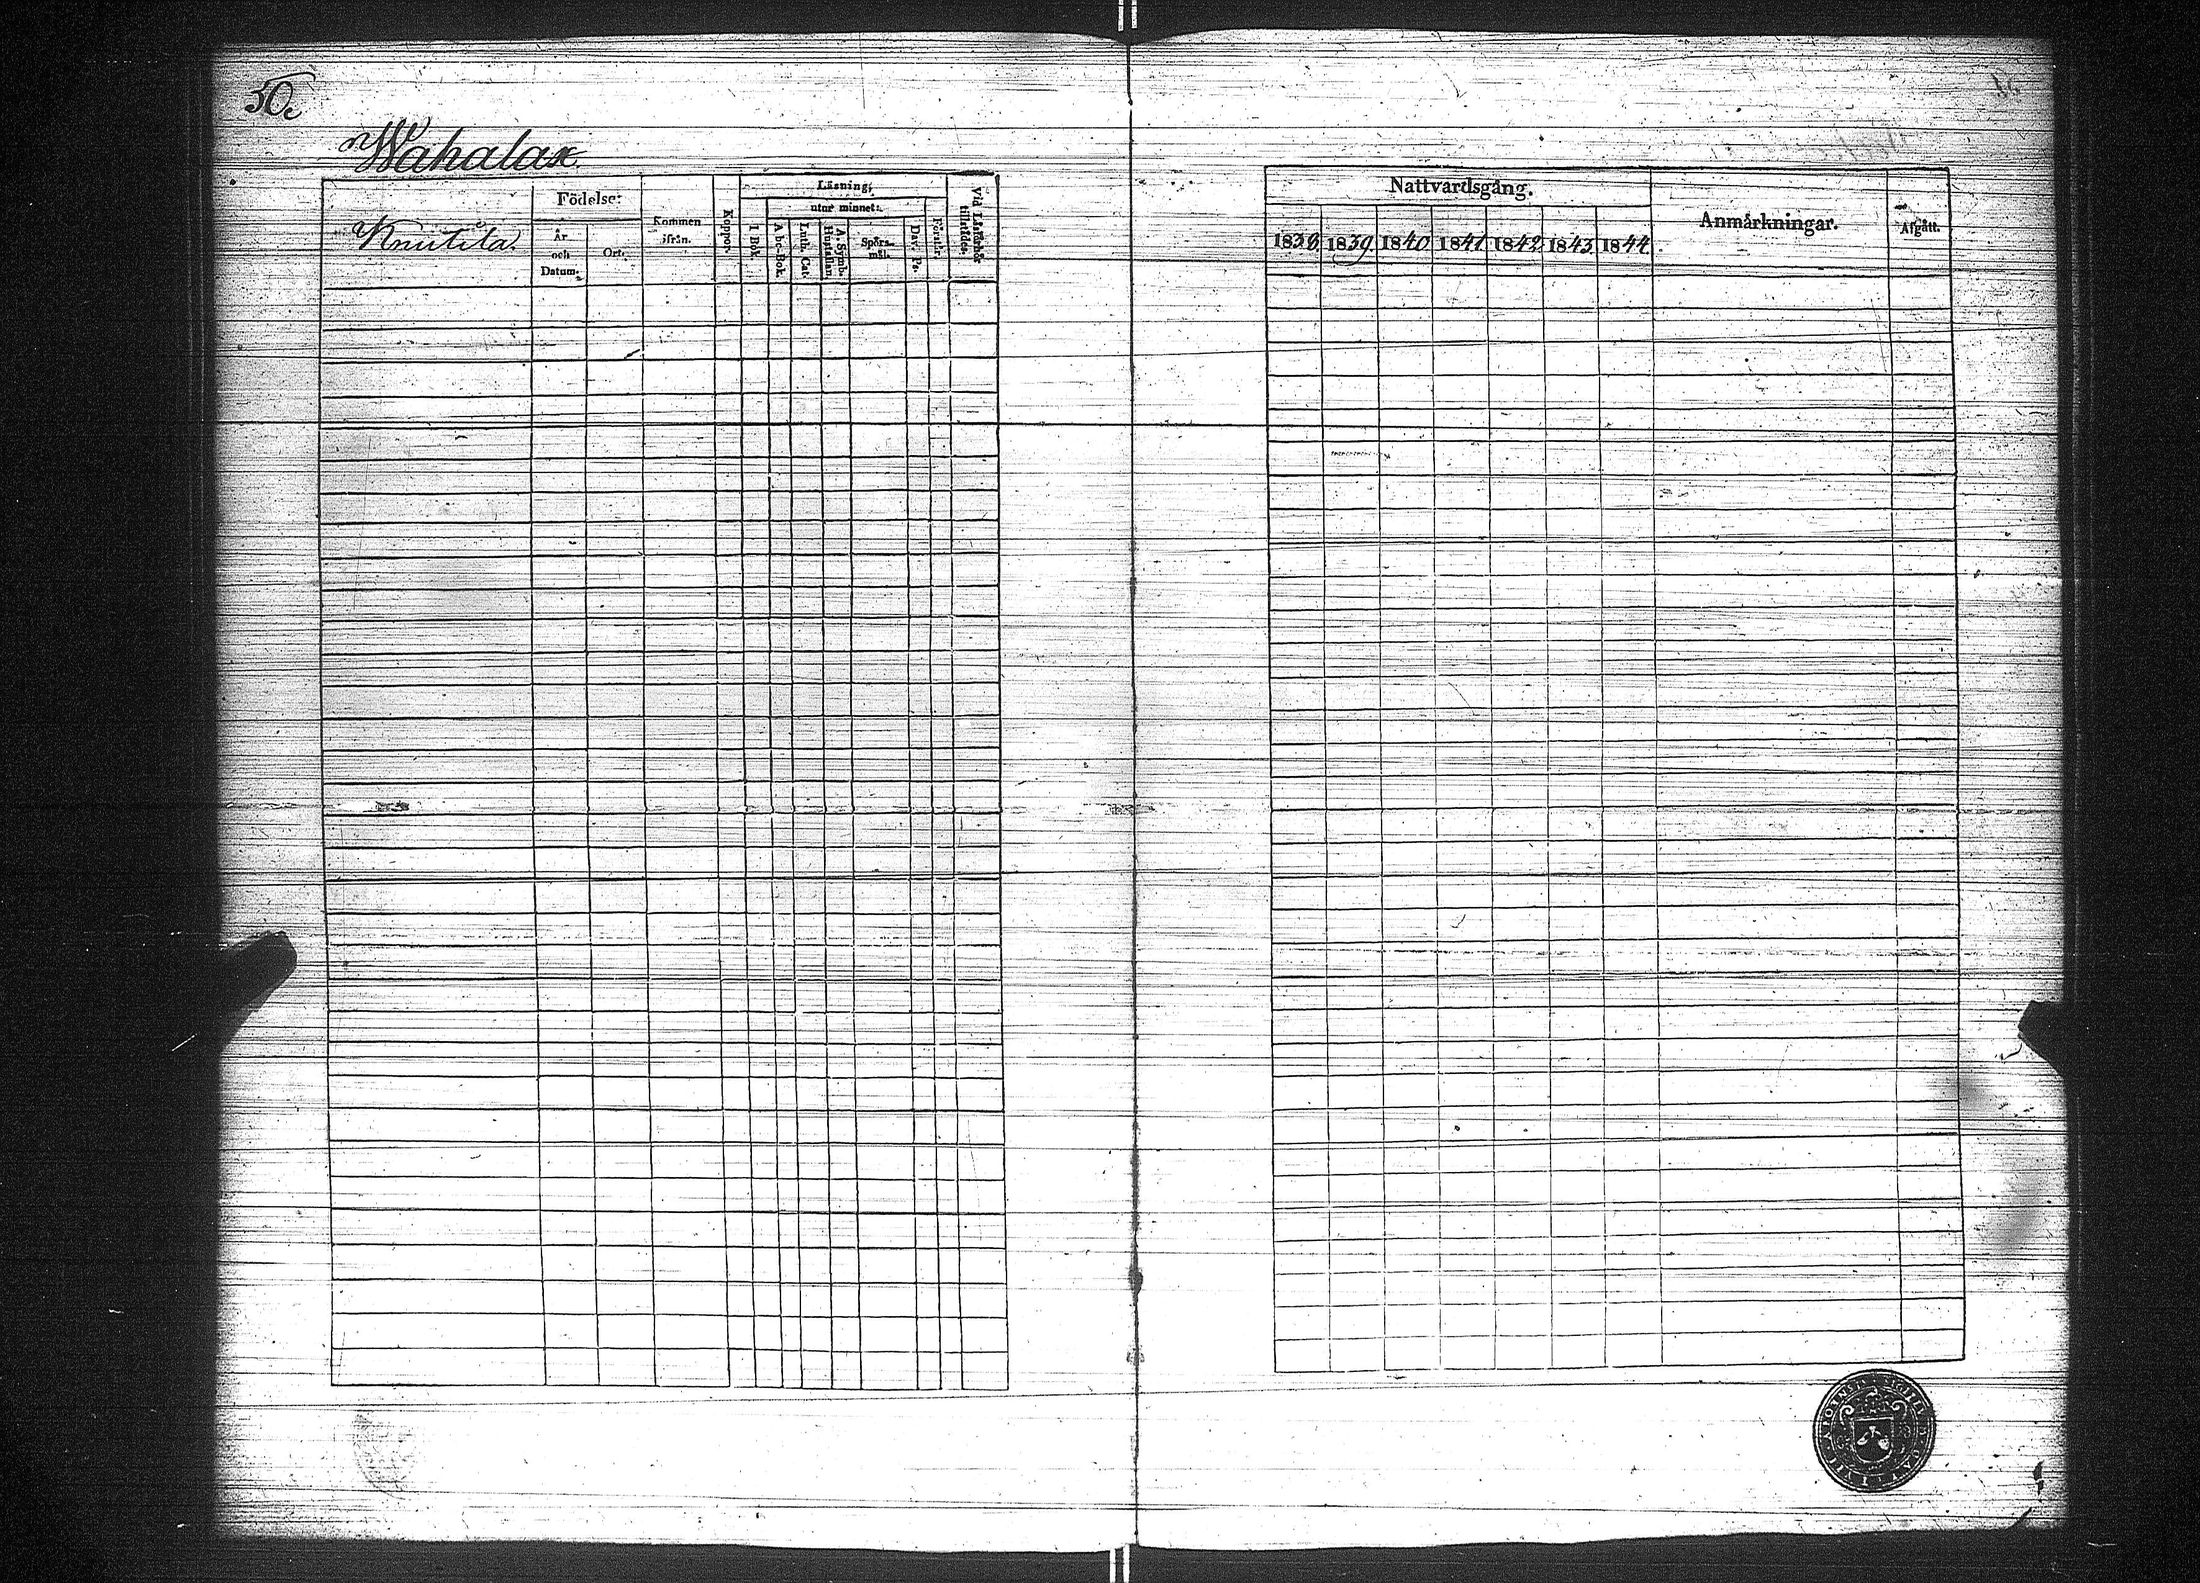 50
Wahalax
Knutila.
Födelse:
År
och
Datum.
Ort.
Kommen
ifrån.
Koppor.
Läsning,
utur minnet:
I Bok
A bc-Bok.
Luth. Cat.
A. Symb.
Hustaflan
Spörs-
mål.
Dav. Ps.
Förstår.
Vid Läsförhör
tillstädes.
Nattvardsgång.
1838. 1839 1840 1841 1842 1843 1844
Anmärkningar.
Afgått.